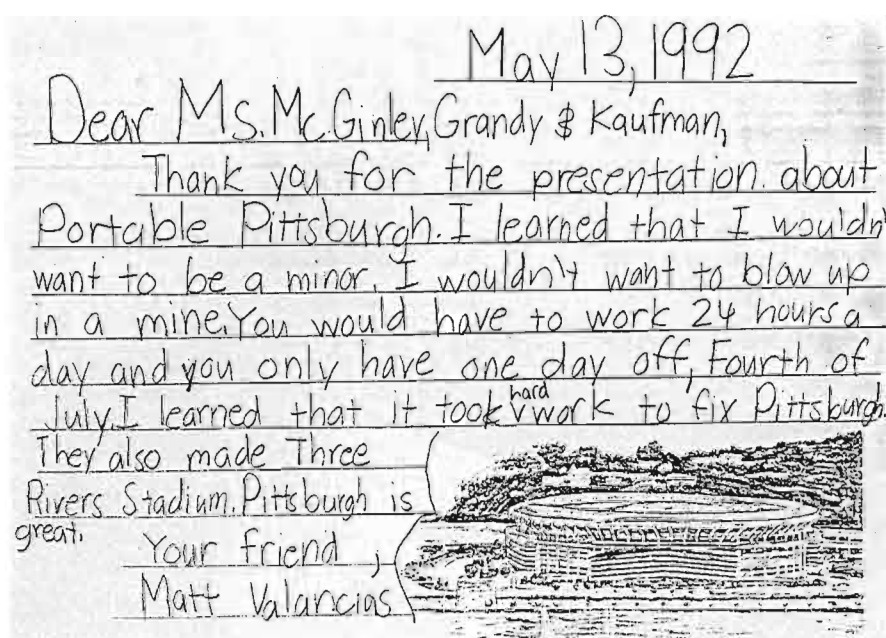 May 13, 1992
Dear Ms. Mc.Ginley, Grandy & Kaufman,
Thank you for the presentation. about
Portable Pittsburgh. I learned that I wouldn't
want to be a minor. I wouldn't want to blow up
in a mine. You would have to work 24 hours a
day and you only have one day off, Fourth of
July. I learned that it took hard work to fix Pittsburgh.
They also made Three
Rivers Stadium. Pittsburgh is
great.
Your friend,
Matt Valancias